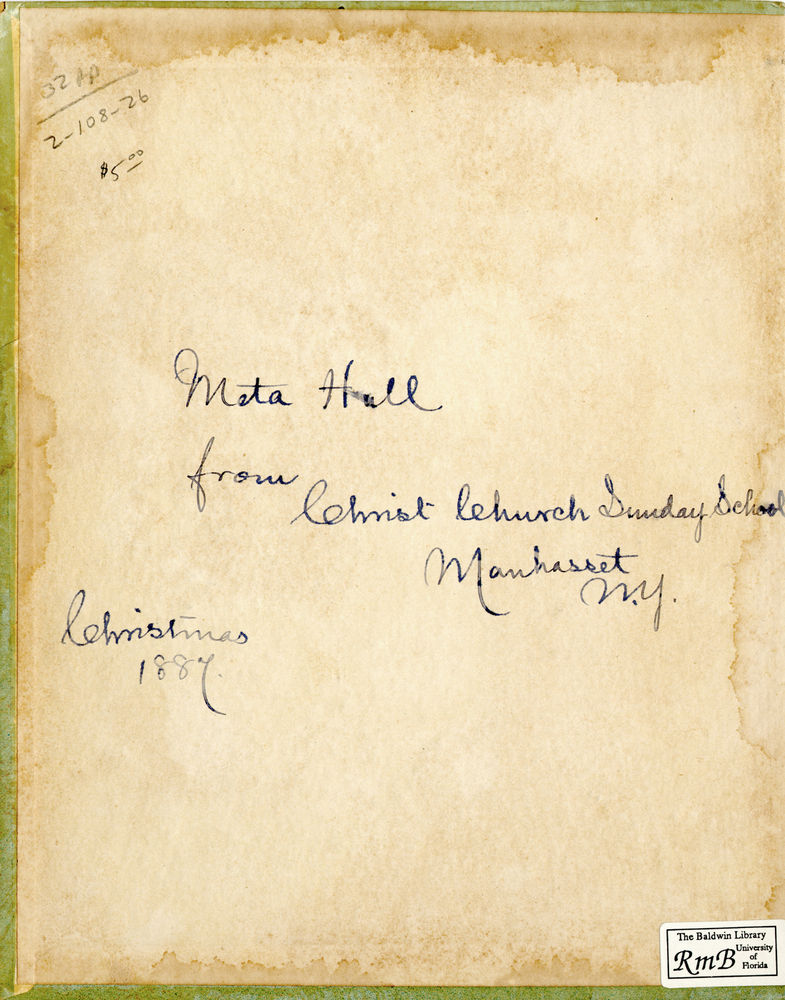 32 pp
2-108-26
$5.00
Meta Hall
from
Christ Church Sunday School
Manhasset
N.Y.
Christmas
1887.
The Baldwin Library
RmB University of Florida